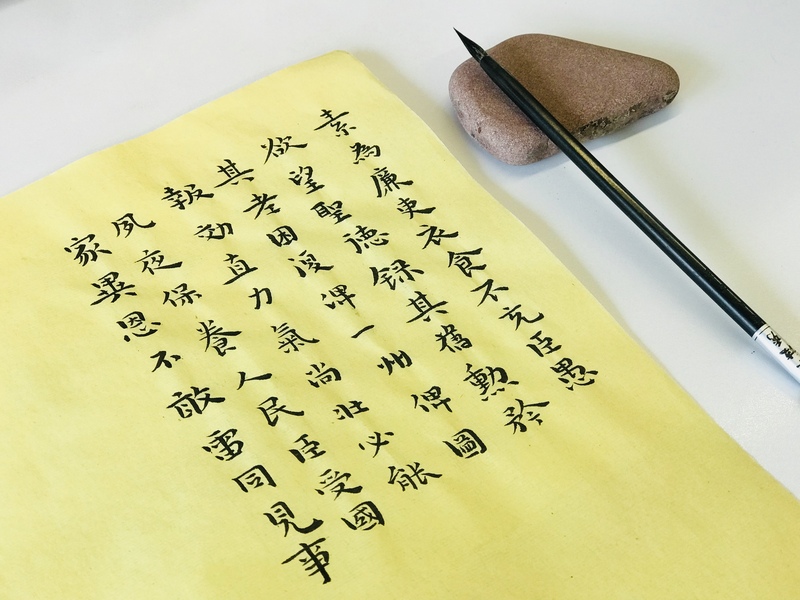 素為廉吏衣食不充臣愚
欲望聖德録其舊勲矜
其老困復俾一州俾圖
報効直力氣尚壯必能
夙夜保養人民臣受國
家異恩不敢雷同見事